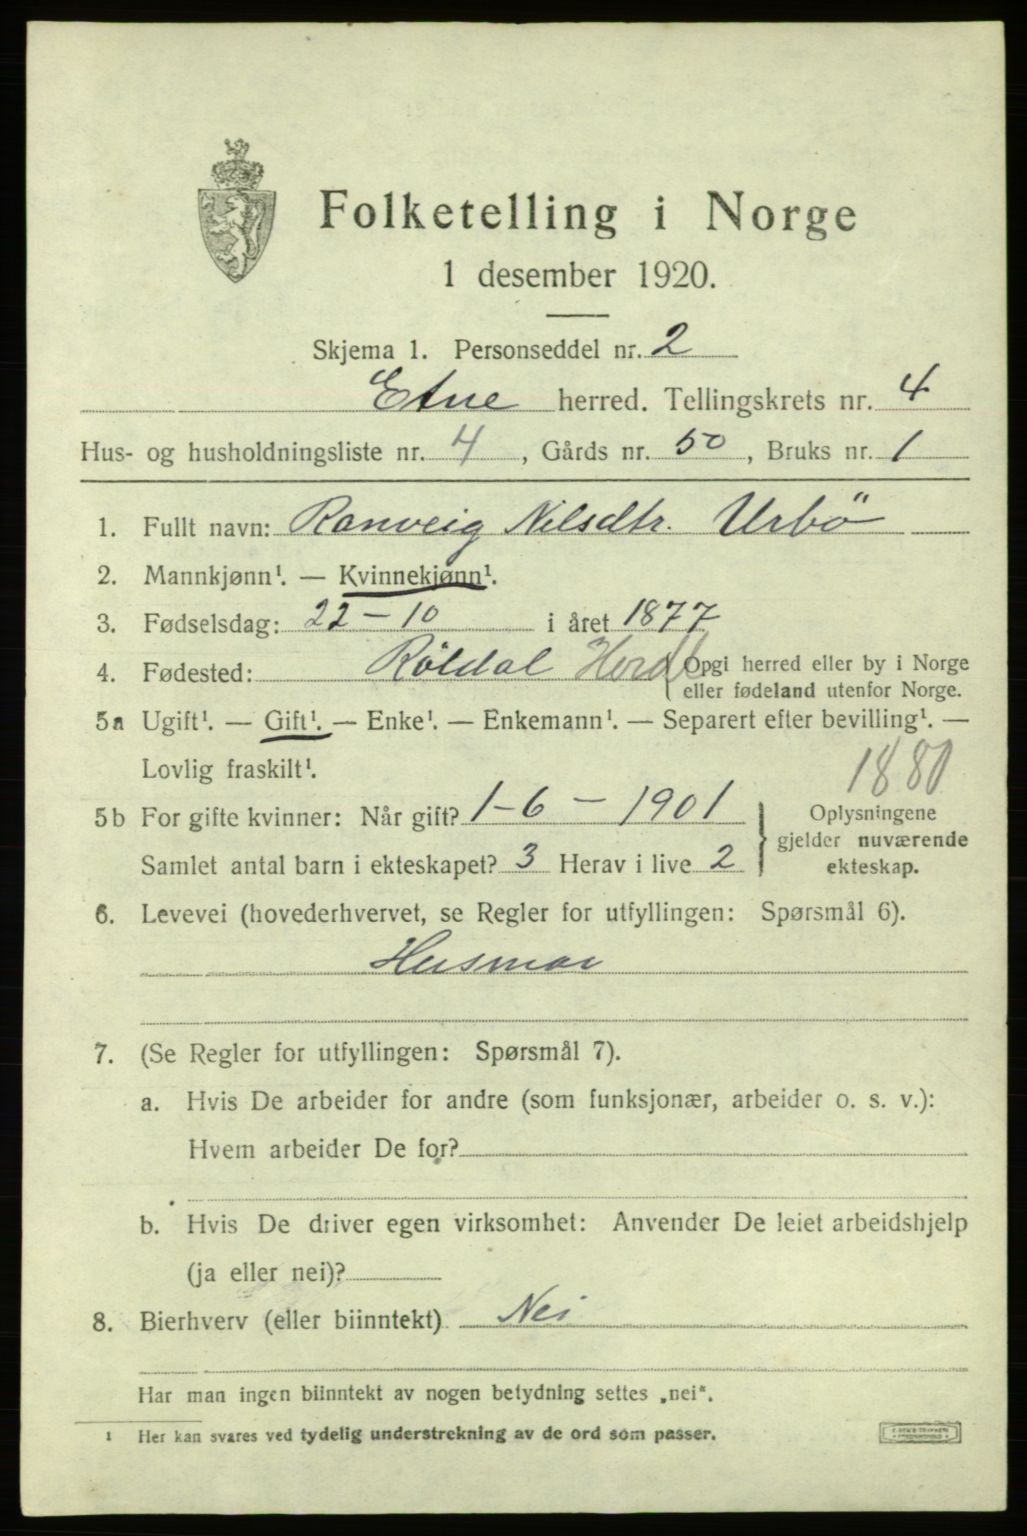 Folketelling i Norge
1 desember 1920.
Skjema 1. Personseddel nr. 2
Etne herred. Tellingskrets nr. 4
Hus- og husholdningsliste nr. 4, Gårds nr. 50, Bruks nr. 1
1. Fullt navn: Ranveig Nilsdtr. Urbö
2. Mannkjønn¹. — Kvinnekjønn¹.
3. Fødselsdag: 22 – 10 i året 1877
4. Fødested: Röldal Hordl Opgi herred eller by i Norge
eller fødeland utenfor Norge.
5a Ugift¹. — Gift¹. — Enke¹. — Enkemann¹. — Separert efter bevilling¹. —
Lovlig fraskilt¹.
1880
5b For gifte kvinner: Når gift? 1-6 – 1901
Samlet antal barn i ekteskapet? 3 Herav i live 2
Oplysningene
gjelder nuværende
ekteskap.
6. Levevei (hovederhvervet, se Regler for utfyllingen: Spørsmål 6).
Husmor
7. (Se Regler for utfyllingen: Spørsmål 7).
a. Hvis De arbeider for andre (som funksjonær, arbeider o. s. v.):
Hvem arbeider De for?
b. Hvis De driver egen virksomhet: Anvender De leiet arbeidshjelp
(ja eller nei)?
8. Bierhverv (eller biinntekt) Nei
Har man ingen biinntekt av nogen betydning settes „nei“.
¹ Her kan svares ved tydelig understrekning av de ord som passer.